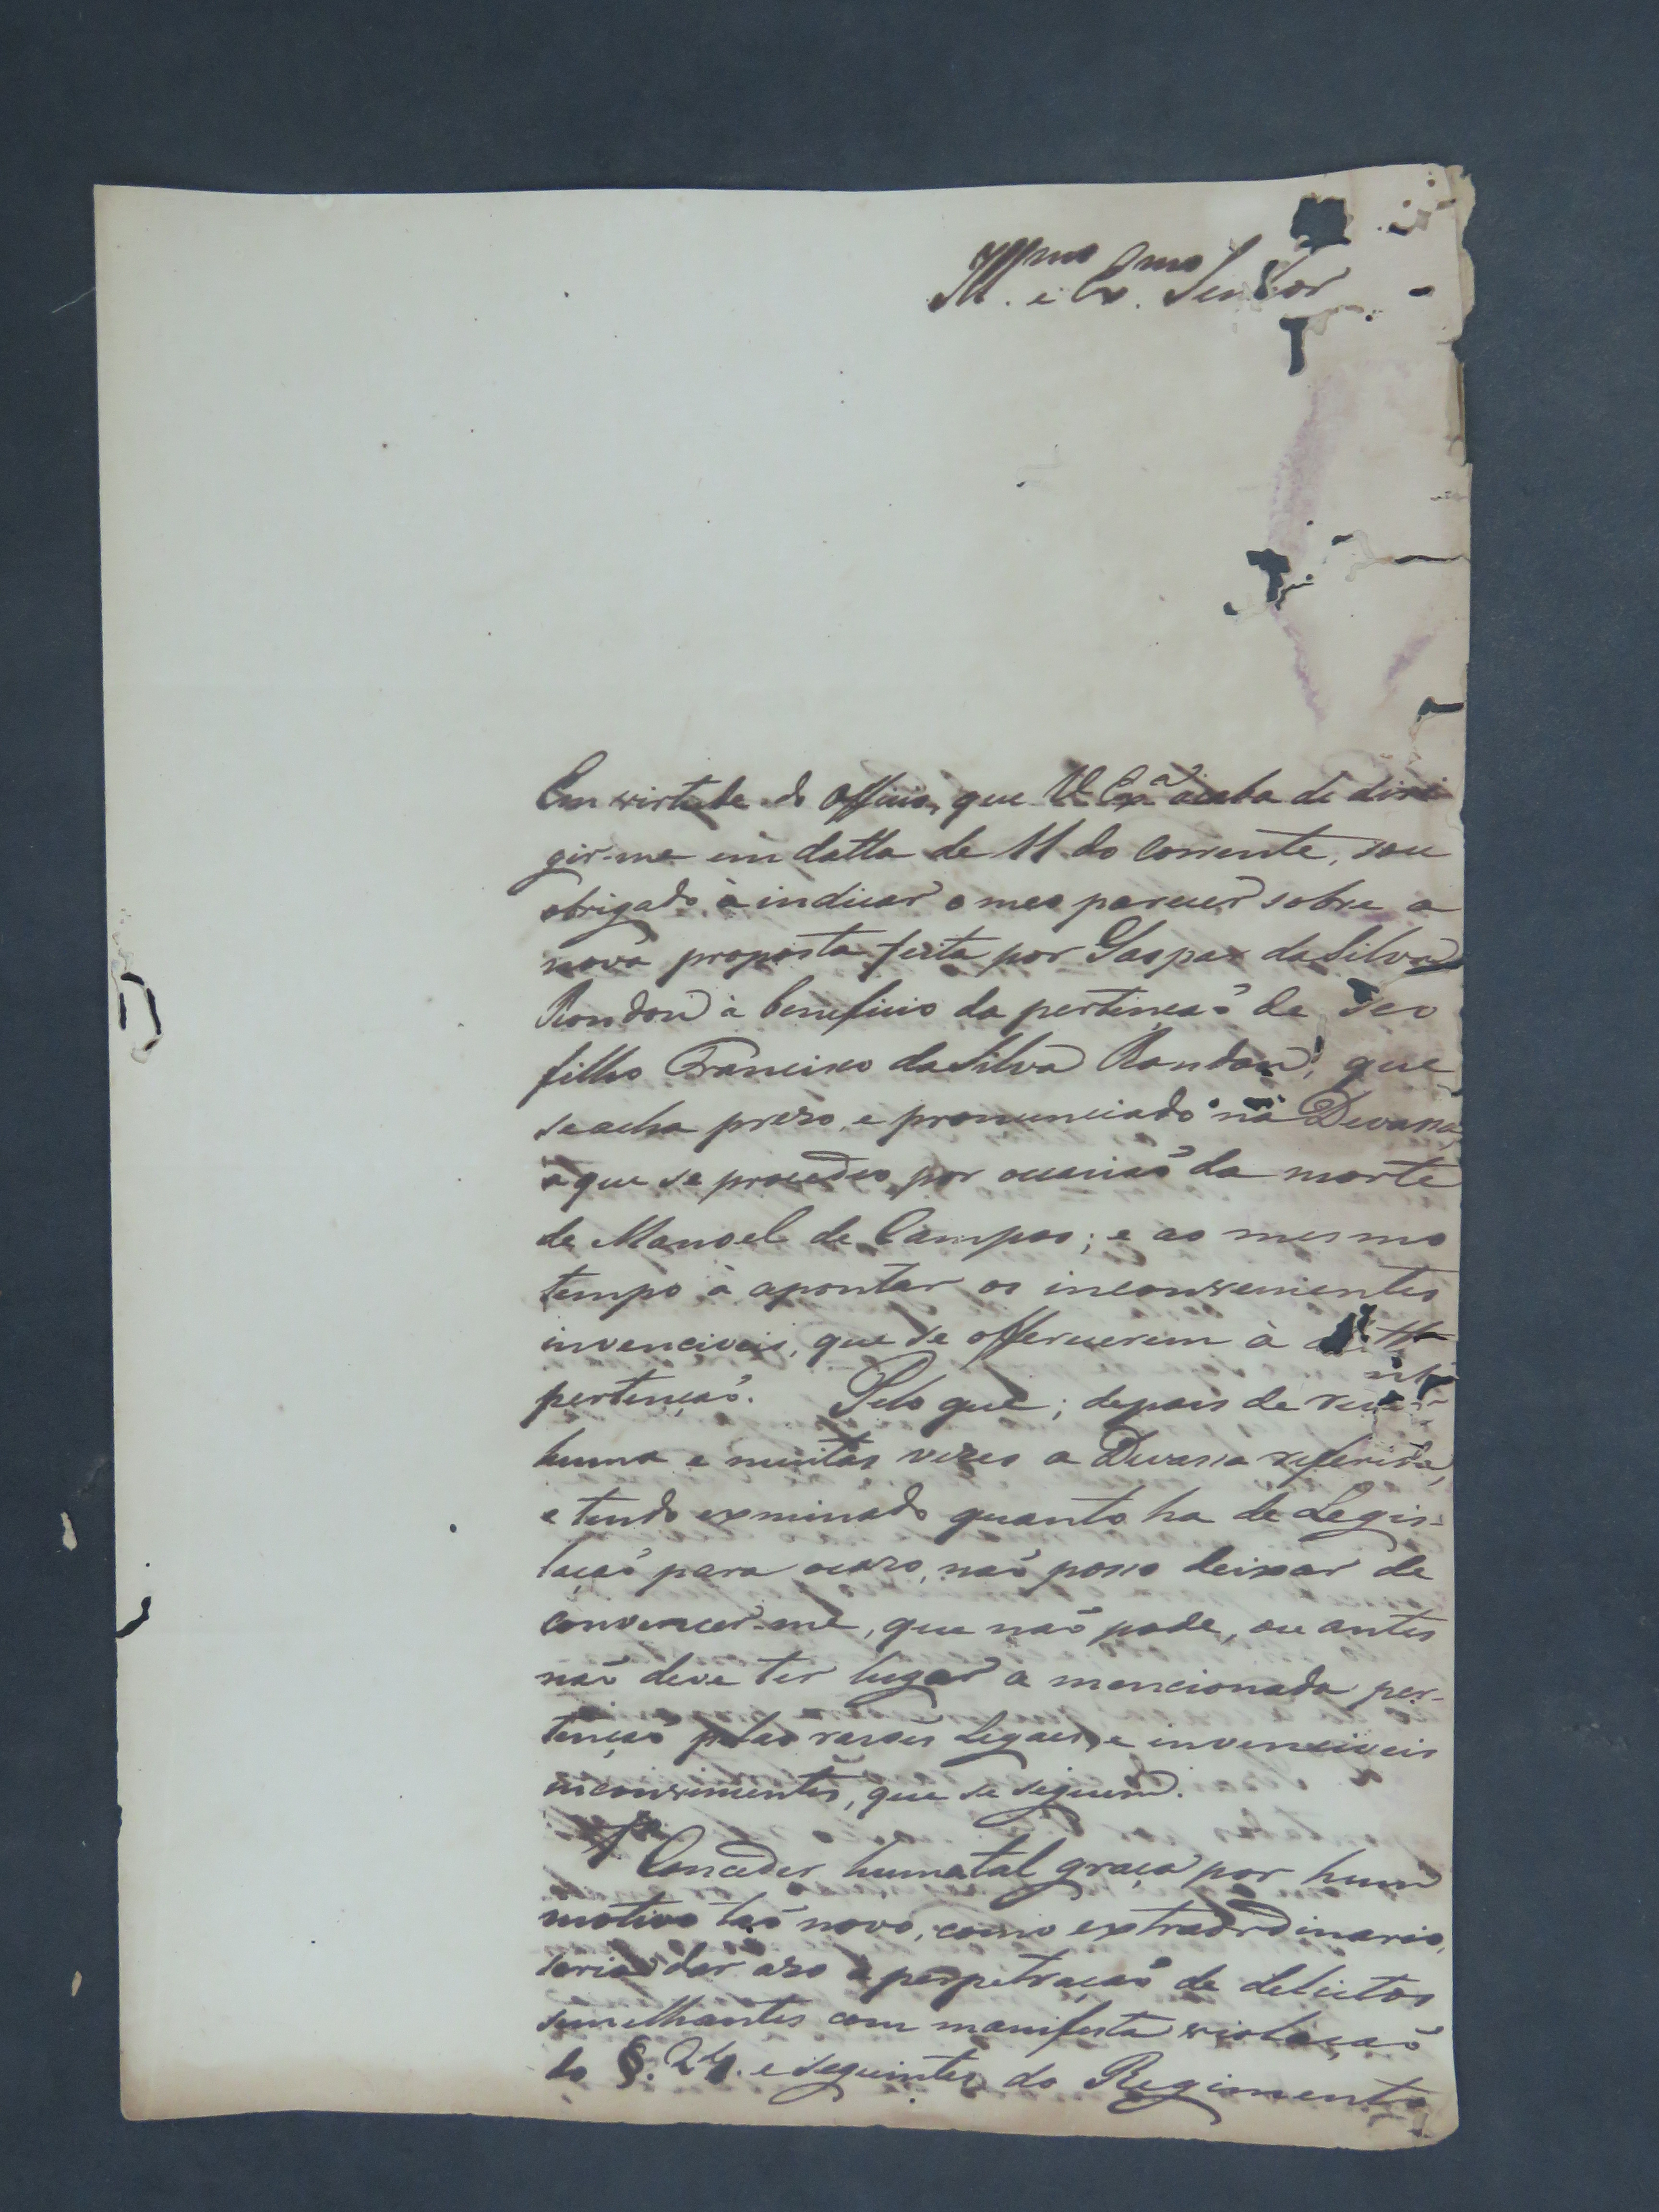 Ill.mo e Ex.mo Senhor
Em virtude do Officio, que V. Ex.a acaba de diri
gir-me em datta de 11 do corrente, sou
obrigado à indicar o meo parecer sobre a
nova proposta feita por Gaspar da Silva
Rondon à beneficio da pertenção de Seo
filho Francisco da Silva Rondon, que
se acha prezo, e pronunciado na Devassa,
a que se procedeo por occasião da morte
de Manoel de Campos; e ao mesmo
tempo à apontar os inconvenientes
invenciveis, que se offerecerem à
pertenção. Pelo que; depois de
huma e muitas vezes a Devassa referida,
e tendo exminado quanto ha de Legis-
lação para o cazo, não posso deixar de
convencer-me, que não pode, ou antes
não deve ter lugar a mencionada per-
tenção pelas rasões Legaes, e invenciveis
inconvinientes, que se seguem.
1.a Conceder huma tal graça por hum
motivo tão novo, como extraordinario,
seria dar azo à perpetração de delictos
semelhantes com manifesta violação
do §. 24. e seguintes do Regimento